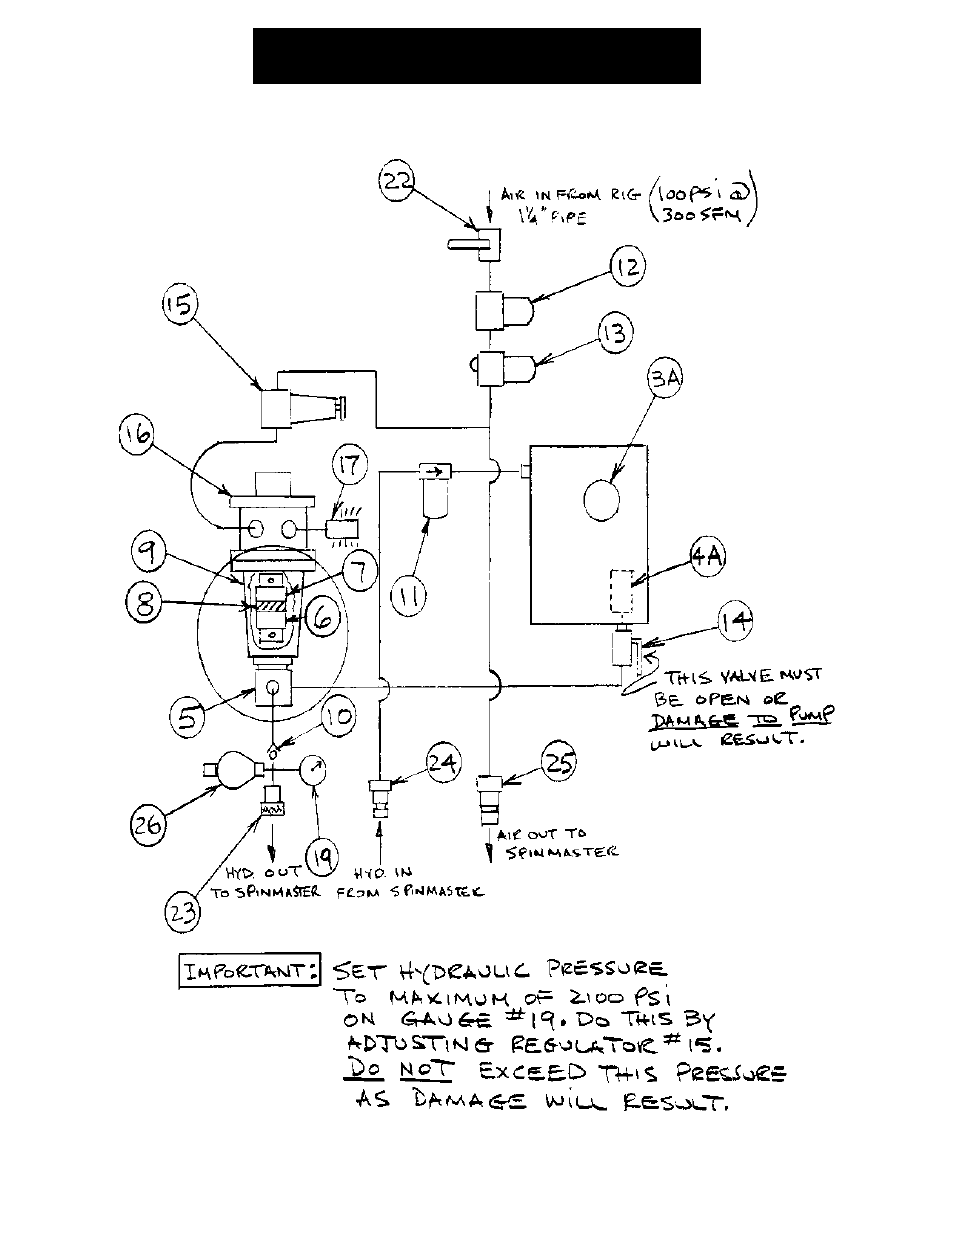 22
AIR IN FROM RIG (100 PSI @
1¼" PIPE 300 SFM)
12
15
13
3A
16
17
9
7
4A
8
6
11
14
THIS VALVE MUST
BE OPEN OR
DAMAGE TO PUMP
WILL RESULT.
5
10
24
25
26
19
AIR OUT TO
SPINMASTER
HYD. OUT
TO SPINMASTER
HYD. IN
FROM SPINMASTER
23
IMPORTANT: SET HYDRAULIC PRESSURE
TO MAXIMUM OF 2100 PSI
ON GAUGE #19. DO THIS BY
ADJUSTING REGULATOR #15.
DO NOT EXCEED THIS PRESSURE
AS DAMAGE WILL RESULT.